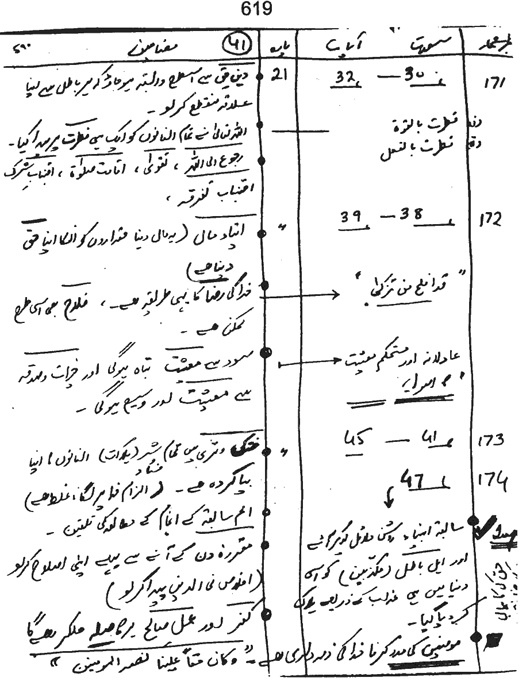 619
نمبر شمار سورت آیات پارہ 41 مضامین
171 30 — 32 21 دین حق سے اسطرح وابستہ ہو جاؤ کہ ہر باطل سے اپنا
علاقہ منقطع کر لو۔
فطرت بالقوۃ اللہ تعالیٰ نے تمام انسانوں کو ایک ہی فطرت پر پیدا کیا۔
فطرت بالفعل رجوع الی اللہ ، تقویٰ ، اقامت صلوٰۃ ، اجتناب شرک
اجتناب تفرقہ ،
172 38 — 39 " ایتاء مال (یہ مال دنیا حقداروں کو انکا اپنا حق
دینا ہے)
" قد افلح من تزکی " خدا کی رضا کا یہی طریقہ ہے ۔ فلاح بھی اسی طرح
ممکن ہے ۔
عادلانہ اور مستحکم معیشت سود سے معیشت تباہ ہوگی اور خیرات وصدقہ
کے اصول سے معیشت اور وسیع ہوگی ۔
173 41 — 45 " خشکی وتری میں تمام شر فساد (ہلاکت) انسانوں کا اپنا
174 47 بپا کردہ ہے ۔ (الزام خدا پر لگانا غلط ہے)
امم سابقہ کے انجام کے مطالعہ کی تلقین ۔
سابقہ انبیاء مقررہ دن کے آنے سے پہلے اپنی اصلاح کر لو
اور اہل باطل (مکذبین) کو اسی (اخلاص فی الدین پیدا کر لو)
دنیا میں ہی عذاب کے ذریعے ہلاک
کر دیا گیا۔ کفر اور عمل صالح پر صلہ ملکر رہے گا
مومنین کی مدد کرنا خدا کی ذمہ داری ہے ۔ " وکان حقا علینا نصر المومنین "